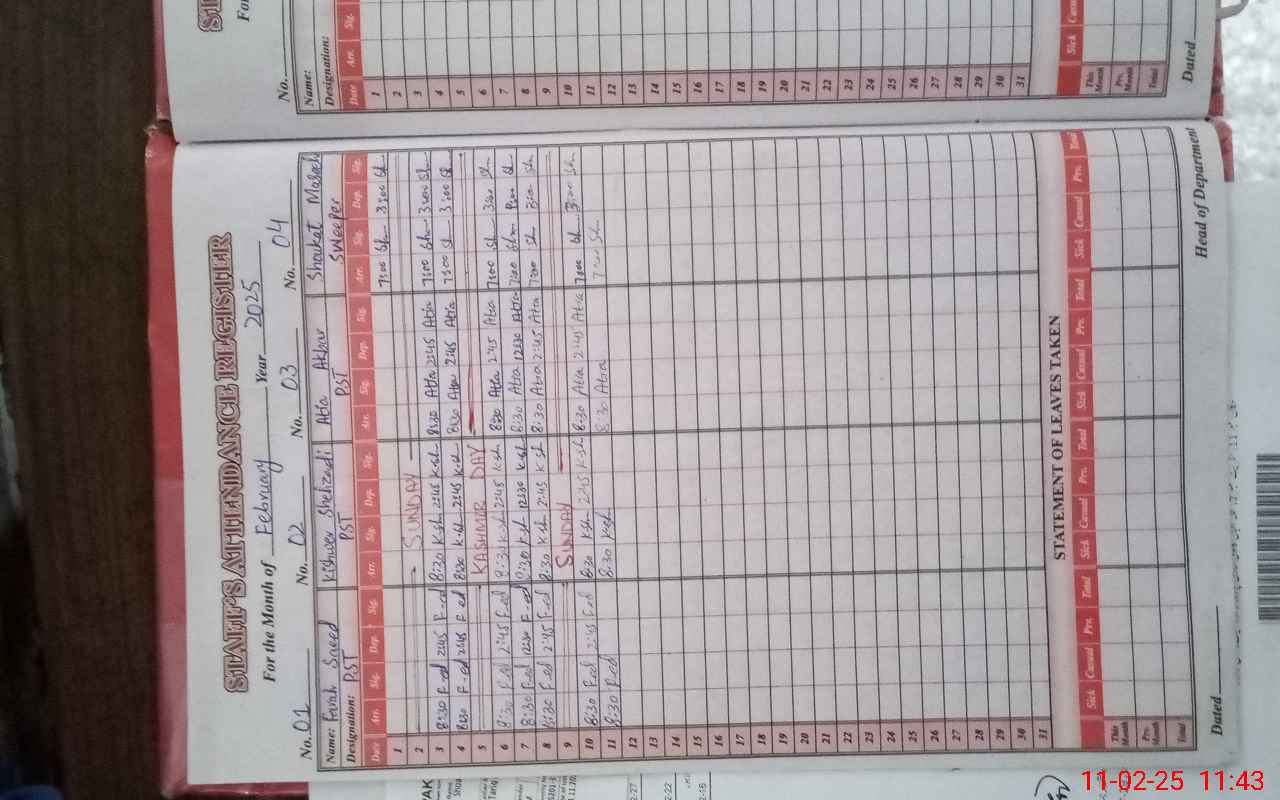 STAFF'S ATTENDANCE REGISTER
For the Month of February Year 2025
No. 01 No. 02 No. 03 No. 04
Name: Farah Saeed Kishwer Shehzadi Atia Akbar Shoukat Masih
Designation: PST PST PST Sweeper
Date Arr. Sig. Dep. Sig. Arr. Sig. Dep. Sig. Arr. Sig. Dep. Sig. Arr. Sig. Dep. Sig.
1 7:00 Sh 3:00 Sh
2 SUNDAY
3 8:30 F-ed 2:45 F-ed 8:30 K-sh 2:45 K-sh 8:30 Atia 2:45 Atia 7:00 Sh 3:00 Sh
4 8:30 F-ed 2:45 F-ed 8:30 K-sh 2:45 K-sh 8:30 Atia 2:45 Atia 7:00 Sh 3:00 Sh
5 KASHMIR DAY
6 8:30 F-ed 2:45 F-ed 8:30 K-sh 2:45 K-sh 8:30 Atia 2:45 Atia 7:00 Sh 3:00 Sh
7 8:30 F-ed 12:30 F-ed 8:30 K-sh 12:30 K-sh 8:30 Atia 12:30 Atia 7:00 Sh Sh
8 8:30 F-ed 2:45 F-ed 8:30 K-sh 2:45 K-sh 8:30 Atia 2:45 Atia 7:00 Sh 3:00 Sh
9 SUNDAY
10 8:30 F-ed 2:45 F-ed 8:30 K-sh 2:45 K-sh 8:30 Atia 2:45 Atia 7:00 Sh 3:00 Sh
11 8:30 F-ed 8:30 K-sh 8:30 Atia 7:00 Sh
12
13
14
15
16
17
18
19
20
21
22
23
24
25
26
27
28
29
30
31
STATEMENT OF LEAVES TAKEN
Sick Casual Prv. Total Sick Casual Prv. Total Sick Casual Prv. Total Sick Casual Prv. Total
This Month
Prv. Month
Total
Dated Head of Department
No.
Name:
Designation:
Date Arr. Sig.
1
2
3
4
5
6
7
8
9
10
11
12
13
14
15
16
17
18
19
20
21
22
23
24
25
26
27
28
29
30
31
Sick
This Month
Prv. Month
Total
Dated
11-02-25 11:43